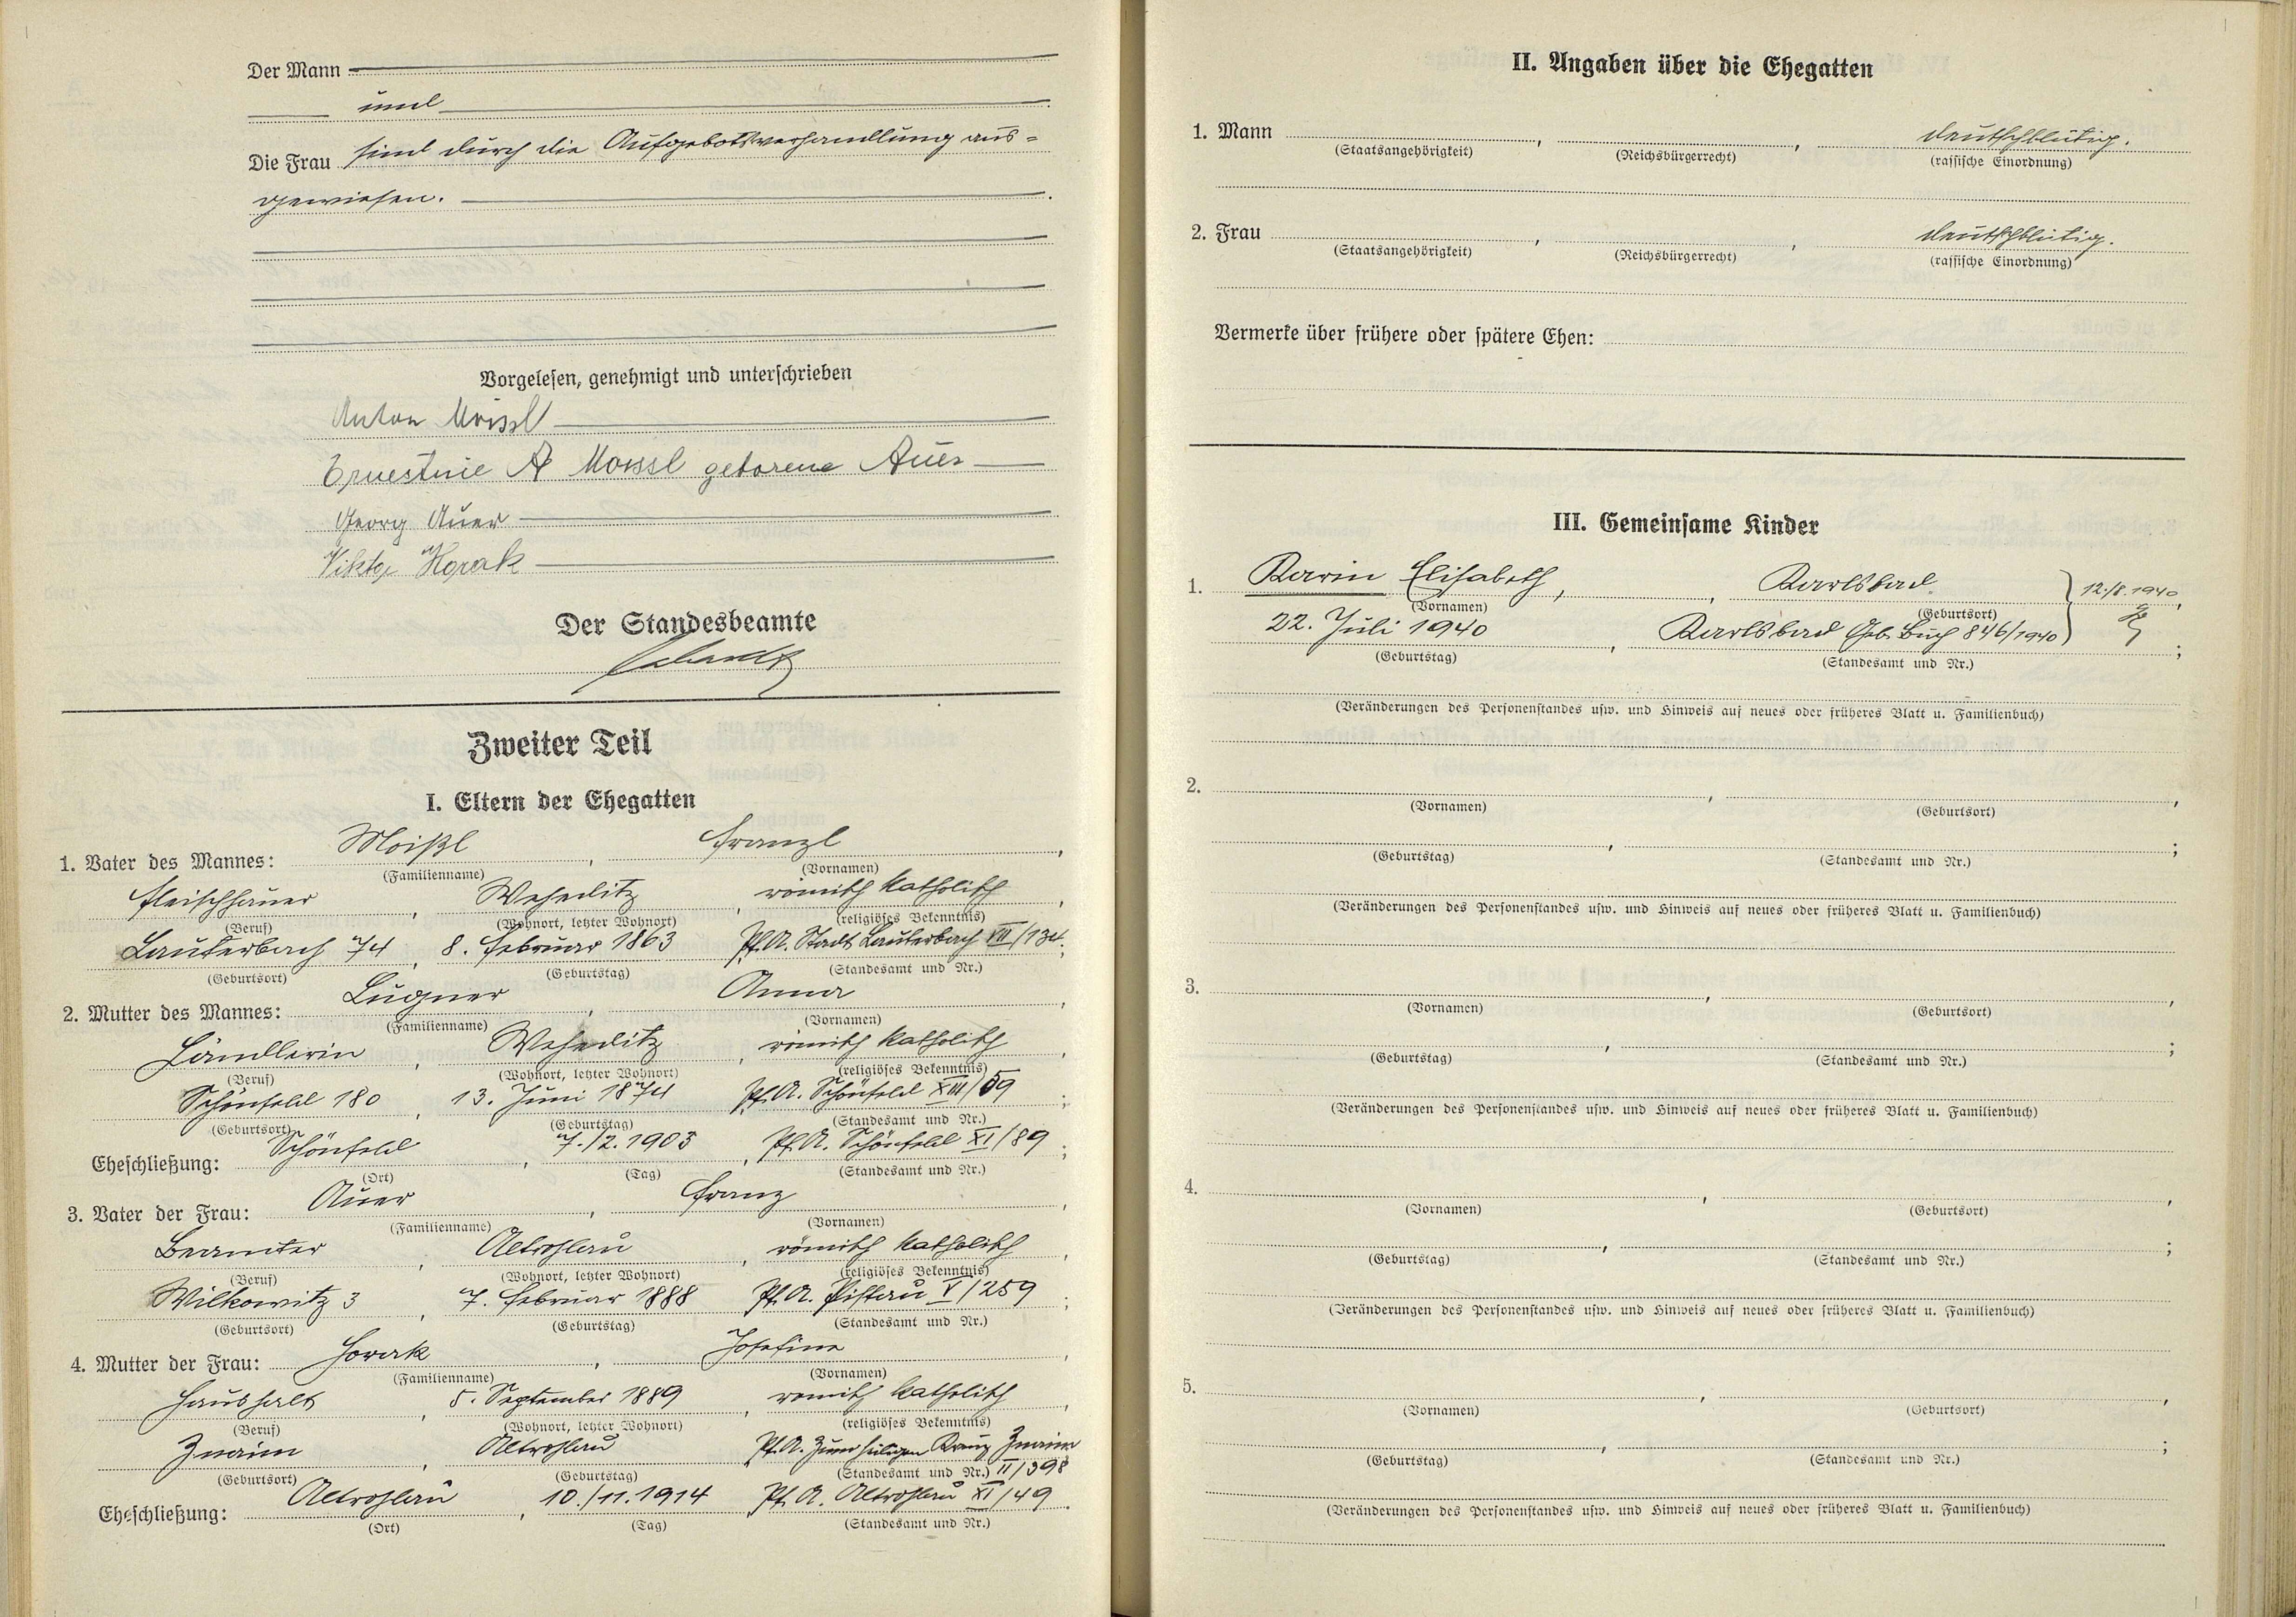 Der Mann
und
Die Frau sind durch die Aufgebotsverhandlung aus=
gewiesen.
Vorgelesen, genehmigt und unterschrieben
Anton Moissl
Ernestine A Moissl geborene Auer
Georg Auer
Viktor Horak
Der Standesbeamte
Zweiter Teil
I. Eltern der Ehegatten
1. Vater des Mannes: Moißl, Franzl,
(Familienname) (Vornamen)
Fleischhauer, Weheditz, römisch katholisch,
(Beruf) (Wohnort, letzter Wohnort) (religiöses Bekenntnis)
Lauterbach 74, 8. Februar 1863 Pf. A. Stadt Lauterbach VII/134;
(Geburtsort) (Geburtstag) (Standesamt und Nr.)
2. Mutter des Mannes: Lugner, Anna,
(Familienname) (Vornamen)
Händlerin, Weheditz, römisch katholisch,
(Beruf) (Wohnort, letzter Wohnort) (religiöses Bekenntnis)
Schönfeld 180, 13. Juni 1874 Pf. A. Schönfeld XIII/59;
(Geburtsort) (Geburtstag) (Standesamt und Nr.)
Eheschließung: Schönfeld, 7./2.1903, Pf. A. Schönfeld XI/89;
(Ort) (Tag) (Standesamt und Nr.)
3. Vater der Frau: Auer, Franz,
(Familienname) (Vornamen)
Beamter, Altrohlau, römisch katholisch,
(Beruf) (Wohnort, letzter Wohnort) (religiöses Bekenntnis)
Wilkowitz 3, 7. Februar 1888 Pf. A. Pistau V/259;
(Geburtsort) (Geburtstag) (Standesamt und Nr.)
4. Mutter der Frau: Horak, Josefine,
(Familienname) (Vornamen)
Haushalt, 5. September 1889, römisch katholisch,
(Beruf) (Wohnort, letzter Wohnort) (religiöses Bekenntnis)
Znaim, Altrohlau Pf. A. Zum heiligen Kreuz Znaim
(Geburtsort) (Geburtstag) (Standesamt und Nr.) II/398
Eheschließung: Altrohlau, 10./11.1914, Pf. A. Altrohlau XI/49.
(Ort) (Tag) (Standesamt und Nr.)
II. Angaben über die Ehegatten
1. Mann , , deutschblütig.
(Staatsangehörigkeit) (Reichsbürgerrecht) (rassische Einordnung)
2. Frau , , deutschblütig.
(Staatsangehörigkeit) (Reichsbürgerrecht) (rassische Einordnung)
Vermerke über frühere oder spätere Ehen:
III. Gemeinsame Kinder
1. Karin Elisabeth, , Karlsbad 12./8.1940,
(Vornamen) (Geburtsort)
22. Juli 1940, Karlsbad Geb. Buch 846/1940;
(Geburtstag) (Standesamt und Nr.)
(Veränderungen des Personenstandes usw. und Hinweis auf neues oder früheres Blatt u. Familienbuch)
2. , ,
(Vornamen) (Geburtsort)
, ;
(Geburtstag) (Standesamt und Nr.)
(Veränderungen des Personenstandes usw. und Hinweis auf neues oder früheres Blatt u. Familienbuch)
3. , ,
(Vornamen) (Geburtsort)
, ;
(Geburtstag) (Standesamt und Nr.)
(Veränderungen des Personenstandes usw. und Hinweis auf neues oder früheres Blatt u. Familienbuch)
4. , ,
(Vornamen) (Geburtsort)
, ;
(Geburtstag) (Standesamt und Nr.)
(Veränderungen des Personenstandes usw. und Hinweis auf neues oder früheres Blatt u. Familienbuch)
5. , ,
(Vornamen) (Geburtsort)
, ;
(Geburtstag) (Standesamt und Nr.)
(Veränderungen des Personenstandes usw. und Hinweis auf neues oder früheres Blatt u. Familienbuch)